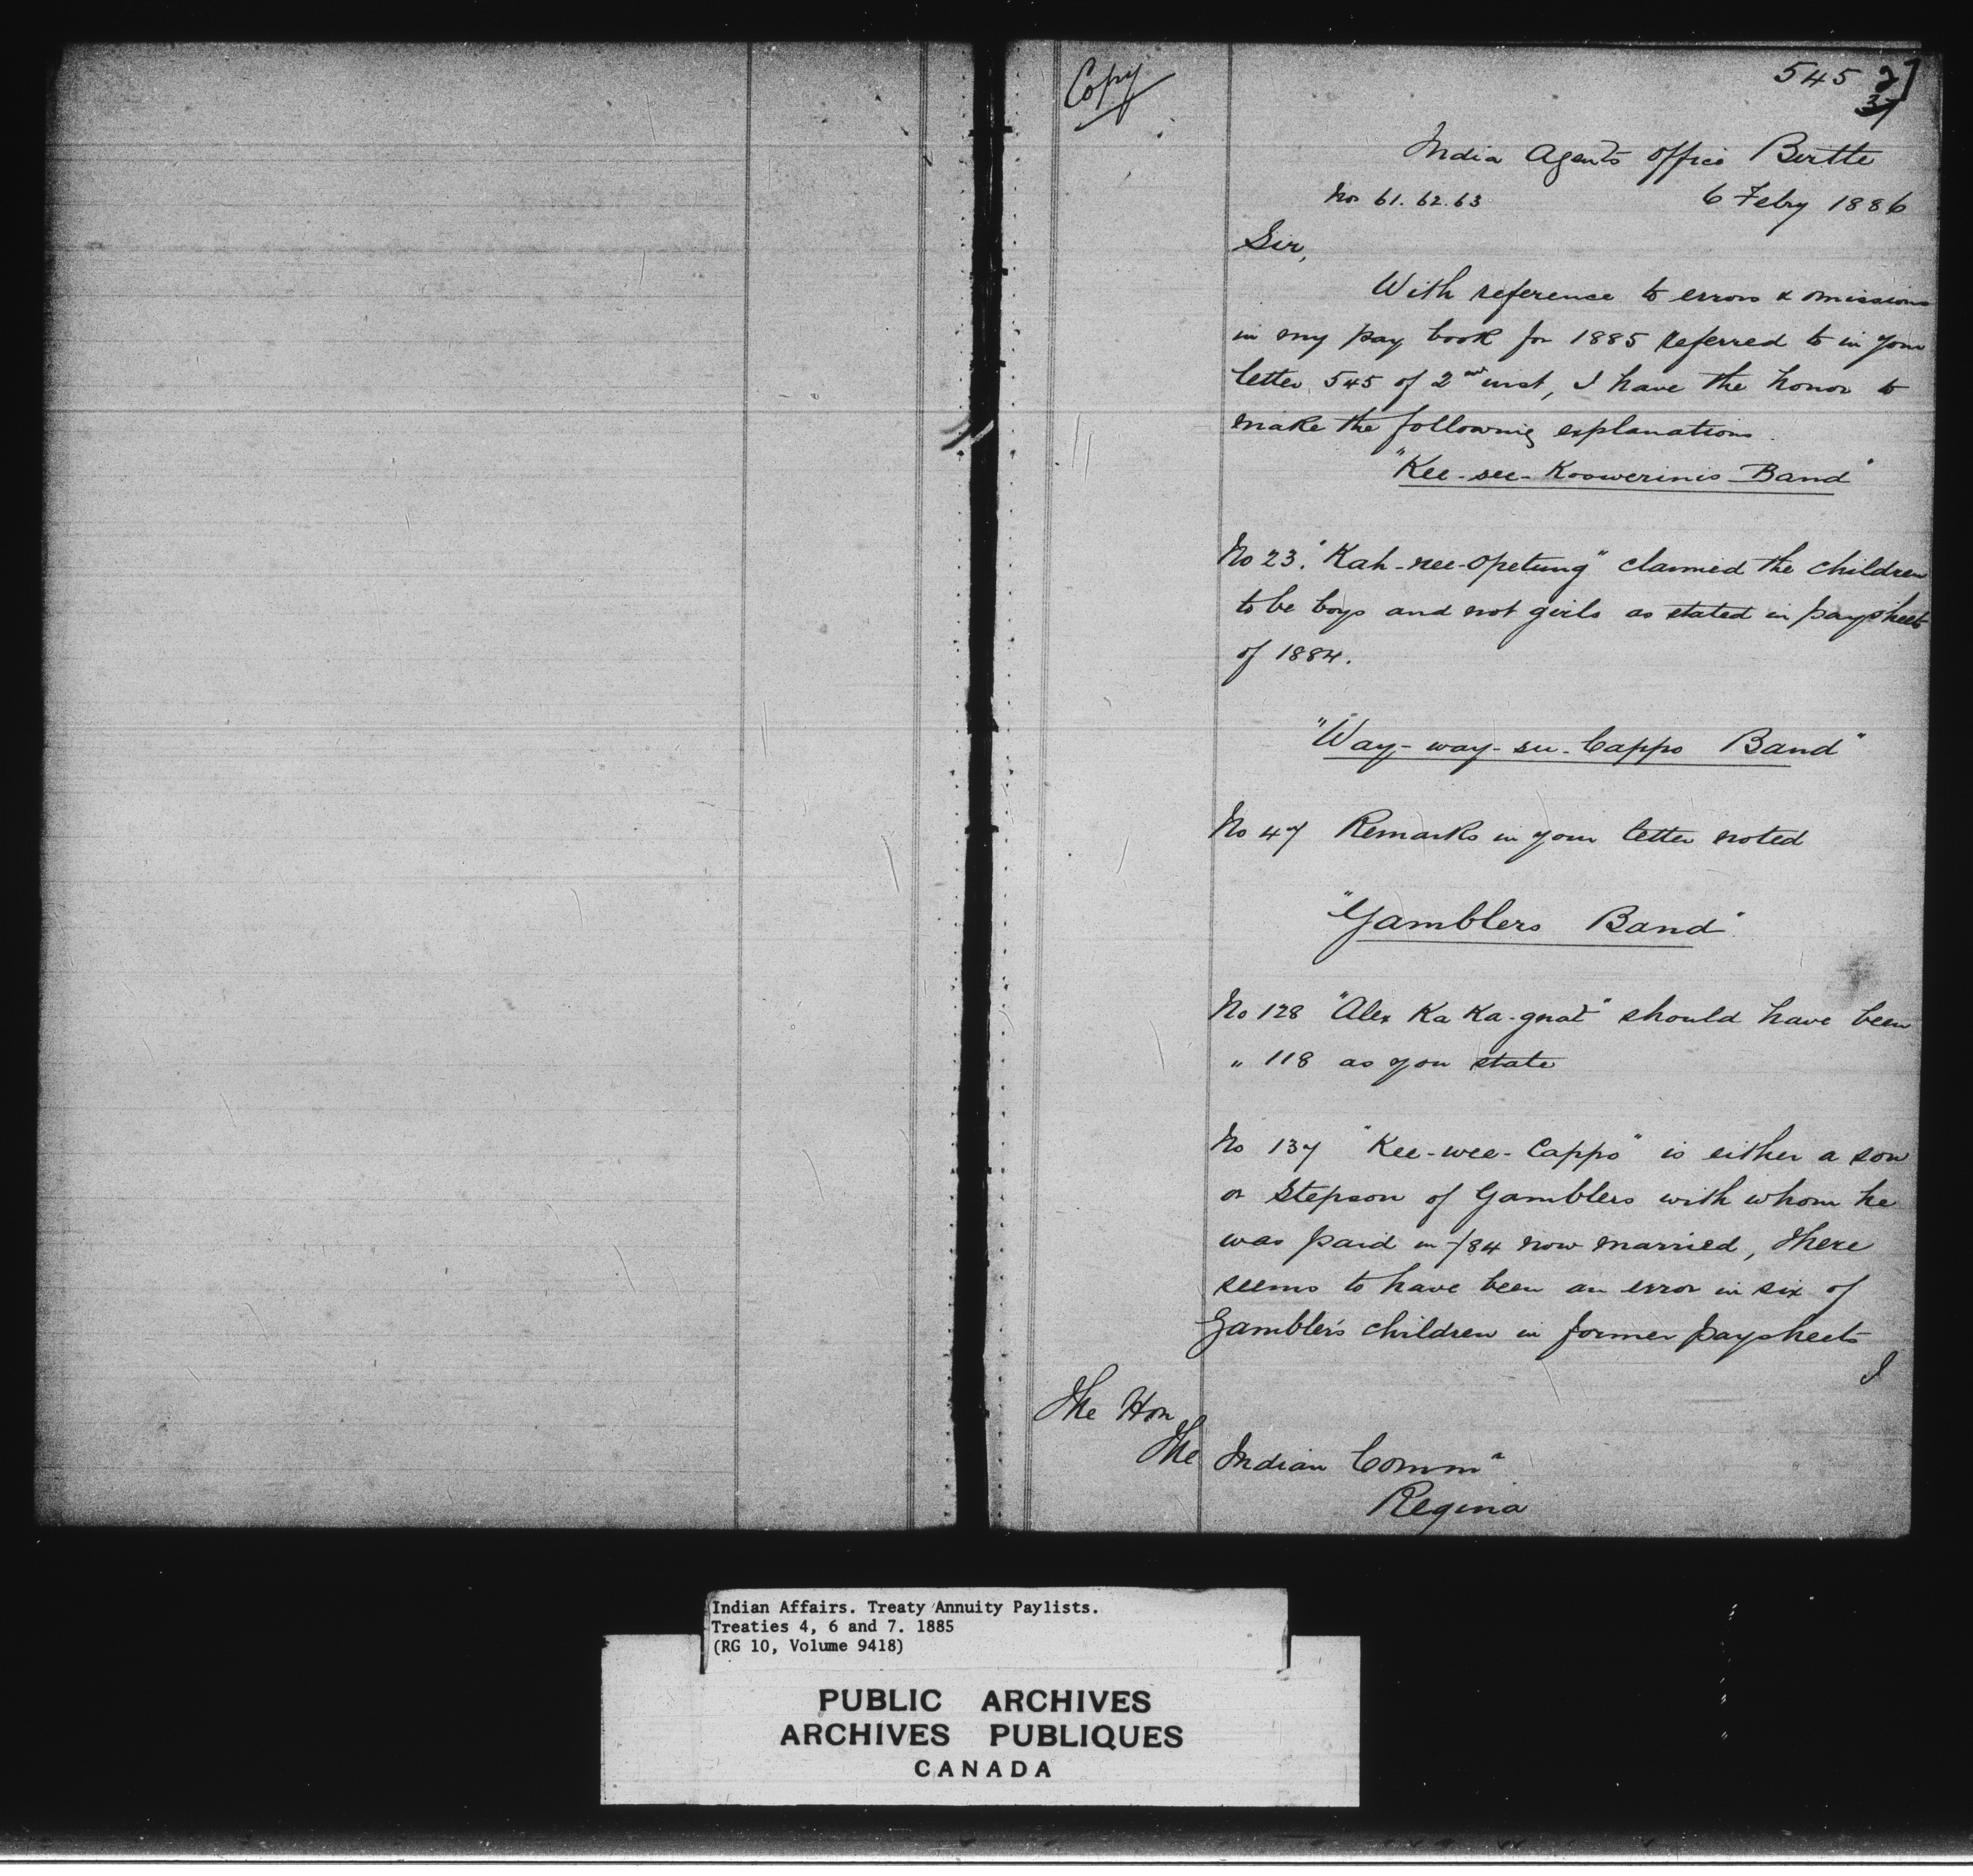 Copy
545
India Agents Office Birtle
Nos 61. 62. 63 6 Feby 1886
Sir,
With reference to errors & omissions
in my pay book for 1885 referred to in your
letter 545 of 2nd inst, I have the honor to
make the following explanations.
"Kee-see-Koowerinis Band"
No 23. "Kah-nee-opetung" claimed the children
to be boys and not girls as stated in paysheets
of 1884.
"Way-way-see-Cappo Band"
No 47 Remarks in your letter noted
"Gamblers Band"
No 128 "Alex Ka Ka-gnat" should have been
" 118 as you state
No 137 "Kee-wee-Cappo" is either a son
or Stepson of Gamblers with whom he
was paid in /84 now married, there
seems to have been an error in six of
Gambler's children in former paysheets
I
The Hon
The Indian Commr
Regina
Indian Affairs. Treaty Annuity Paylists.
Treaties 4, 6 and 7. 1885
(RG 10, Volume 9418)
PUBLIC ARCHIVES
ARCHIVES PUBLIQUES
CANADA